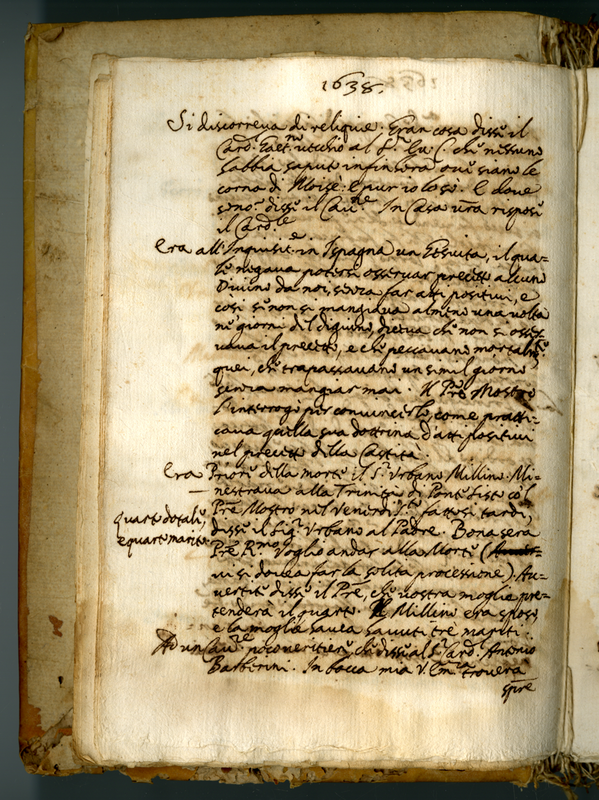 1638.
Si discorreva di reliquie. Gran cosa disse il
Card. Gaet.no vecchio al S.r Cu. C. che nessuno
habbia saputo infin'hora ove siano le
corna di Moisè: e pur io lo sò. E dove
sono? disse il Cav.re In Casa v̄ra rispose
il Card.le
Era all'Inquisit.e in Ispagna un Gesuita, il qua-
le negava potersi osservar precetto alcuno
Divino da noi, senza far atti positivi, e
così se non si mangiava almeno una volta
ne' giorni del digiuno, diceva che non si osser-
vava il precetto, e che peccavano mortalm.te
quei, che trapassavano un simil giorno
senza mangiar mai. Il P̄re Mostro
l'interrogò per convincerlo, come pratti-
cava quella sua dottrina d'atti positivi
nel precetto della Castità.
Era Priore della morte il S.r Urbano Millino. Mi-
nestrava alla Trinità di Ponte Sisto col
P̄re Mostro nel Venerdì S.to fattosi tardi,
disse il Sig.r Urbano al Padre. Bona sera
P̄re R.mo Voglio andar alla Morte (
ivi si dovea far la solita processione). Au-
vertite disse il P̄re, che vostra moglie pre-
tenderà il quarto. Il Millino era sposo,
e la moglie havea havuti tre mariti.
quarto dotale,
e quarto marito.
Ad un Cav.re poco veritiero, che disse al S.r Card. Antonio
Barberini. In bocca mia V. Em.za troverà
sp̄re